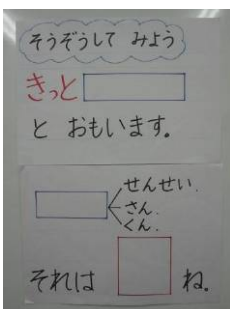 そうぞうして みよう
きっと
と おもいます。
せんせい.
さん.
くん.
それは ね。